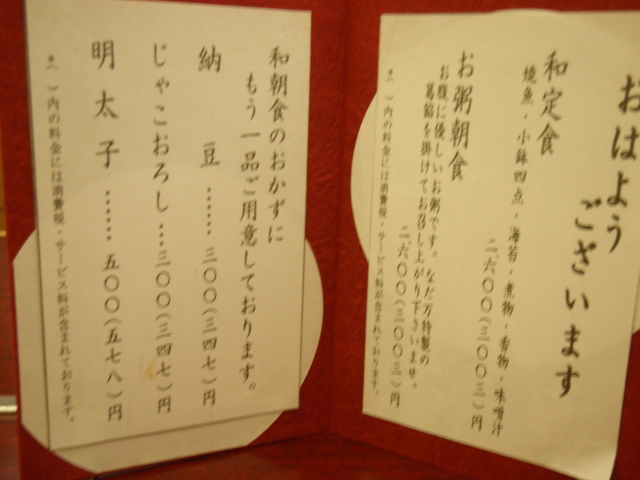 おはよう
ございます
和定食
焼魚・小鉢四点・海苔・煮物・香物・味噌汁
二、六〇〇(三〇〇三)円
お粥朝食
お腹に優しいお粥です。なだ万特製の
葛餡を掛けてお召し上がり下さいませ。
二、六〇〇(三〇〇三)円
*( )内の料金には消費税・サービス料が含まれております。
和朝食のおかずに
もう一品ご用意しております。
納豆……三〇〇(三四七)円
じゃこおろし…三〇〇(三四七)円
明太子……五〇〇(五七八)円
*( )内の料金には消費税・サービス料が含まれております。